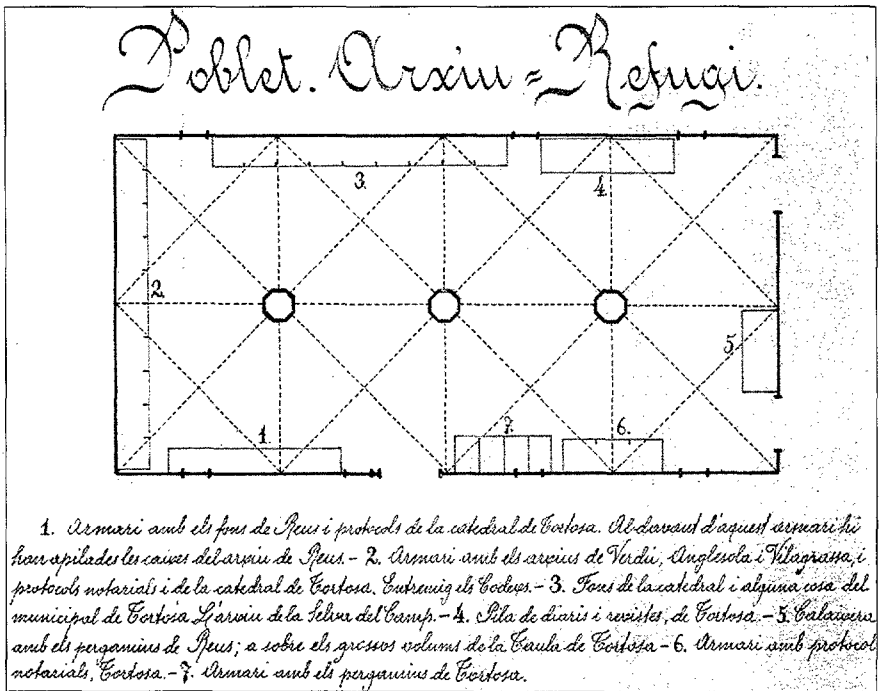 Poblet. Arxiu = Refugi.
3.
4.
2.
5
1.
7.
6.
1. Armari amb els fons de Reus i protocols de la catedral de Tortosa. Al davant d'aquest armari hi
han apilades les caixes del arxiu de Reus. - 2. Armari amb els arxius de Verdú, Anglesola i Vilagrassa, i
protocols notarials i de la catedral de Tortosa. Entremig els Codexs. - 3. Fons de la catedral i alguna cosa del
municipal de Tortosa L'arxiu de la Selva del Camp. - 4. Pila de diaris i revistes, de Tortosa. - 5. Calaixera
amb els pergamins de Reus; a sobre els grossos volums de la Taula de Tortosa - 6. Armari amb protocol
notarials, Tortosa. - 7. Armari amb els pergamins de Tortosa.